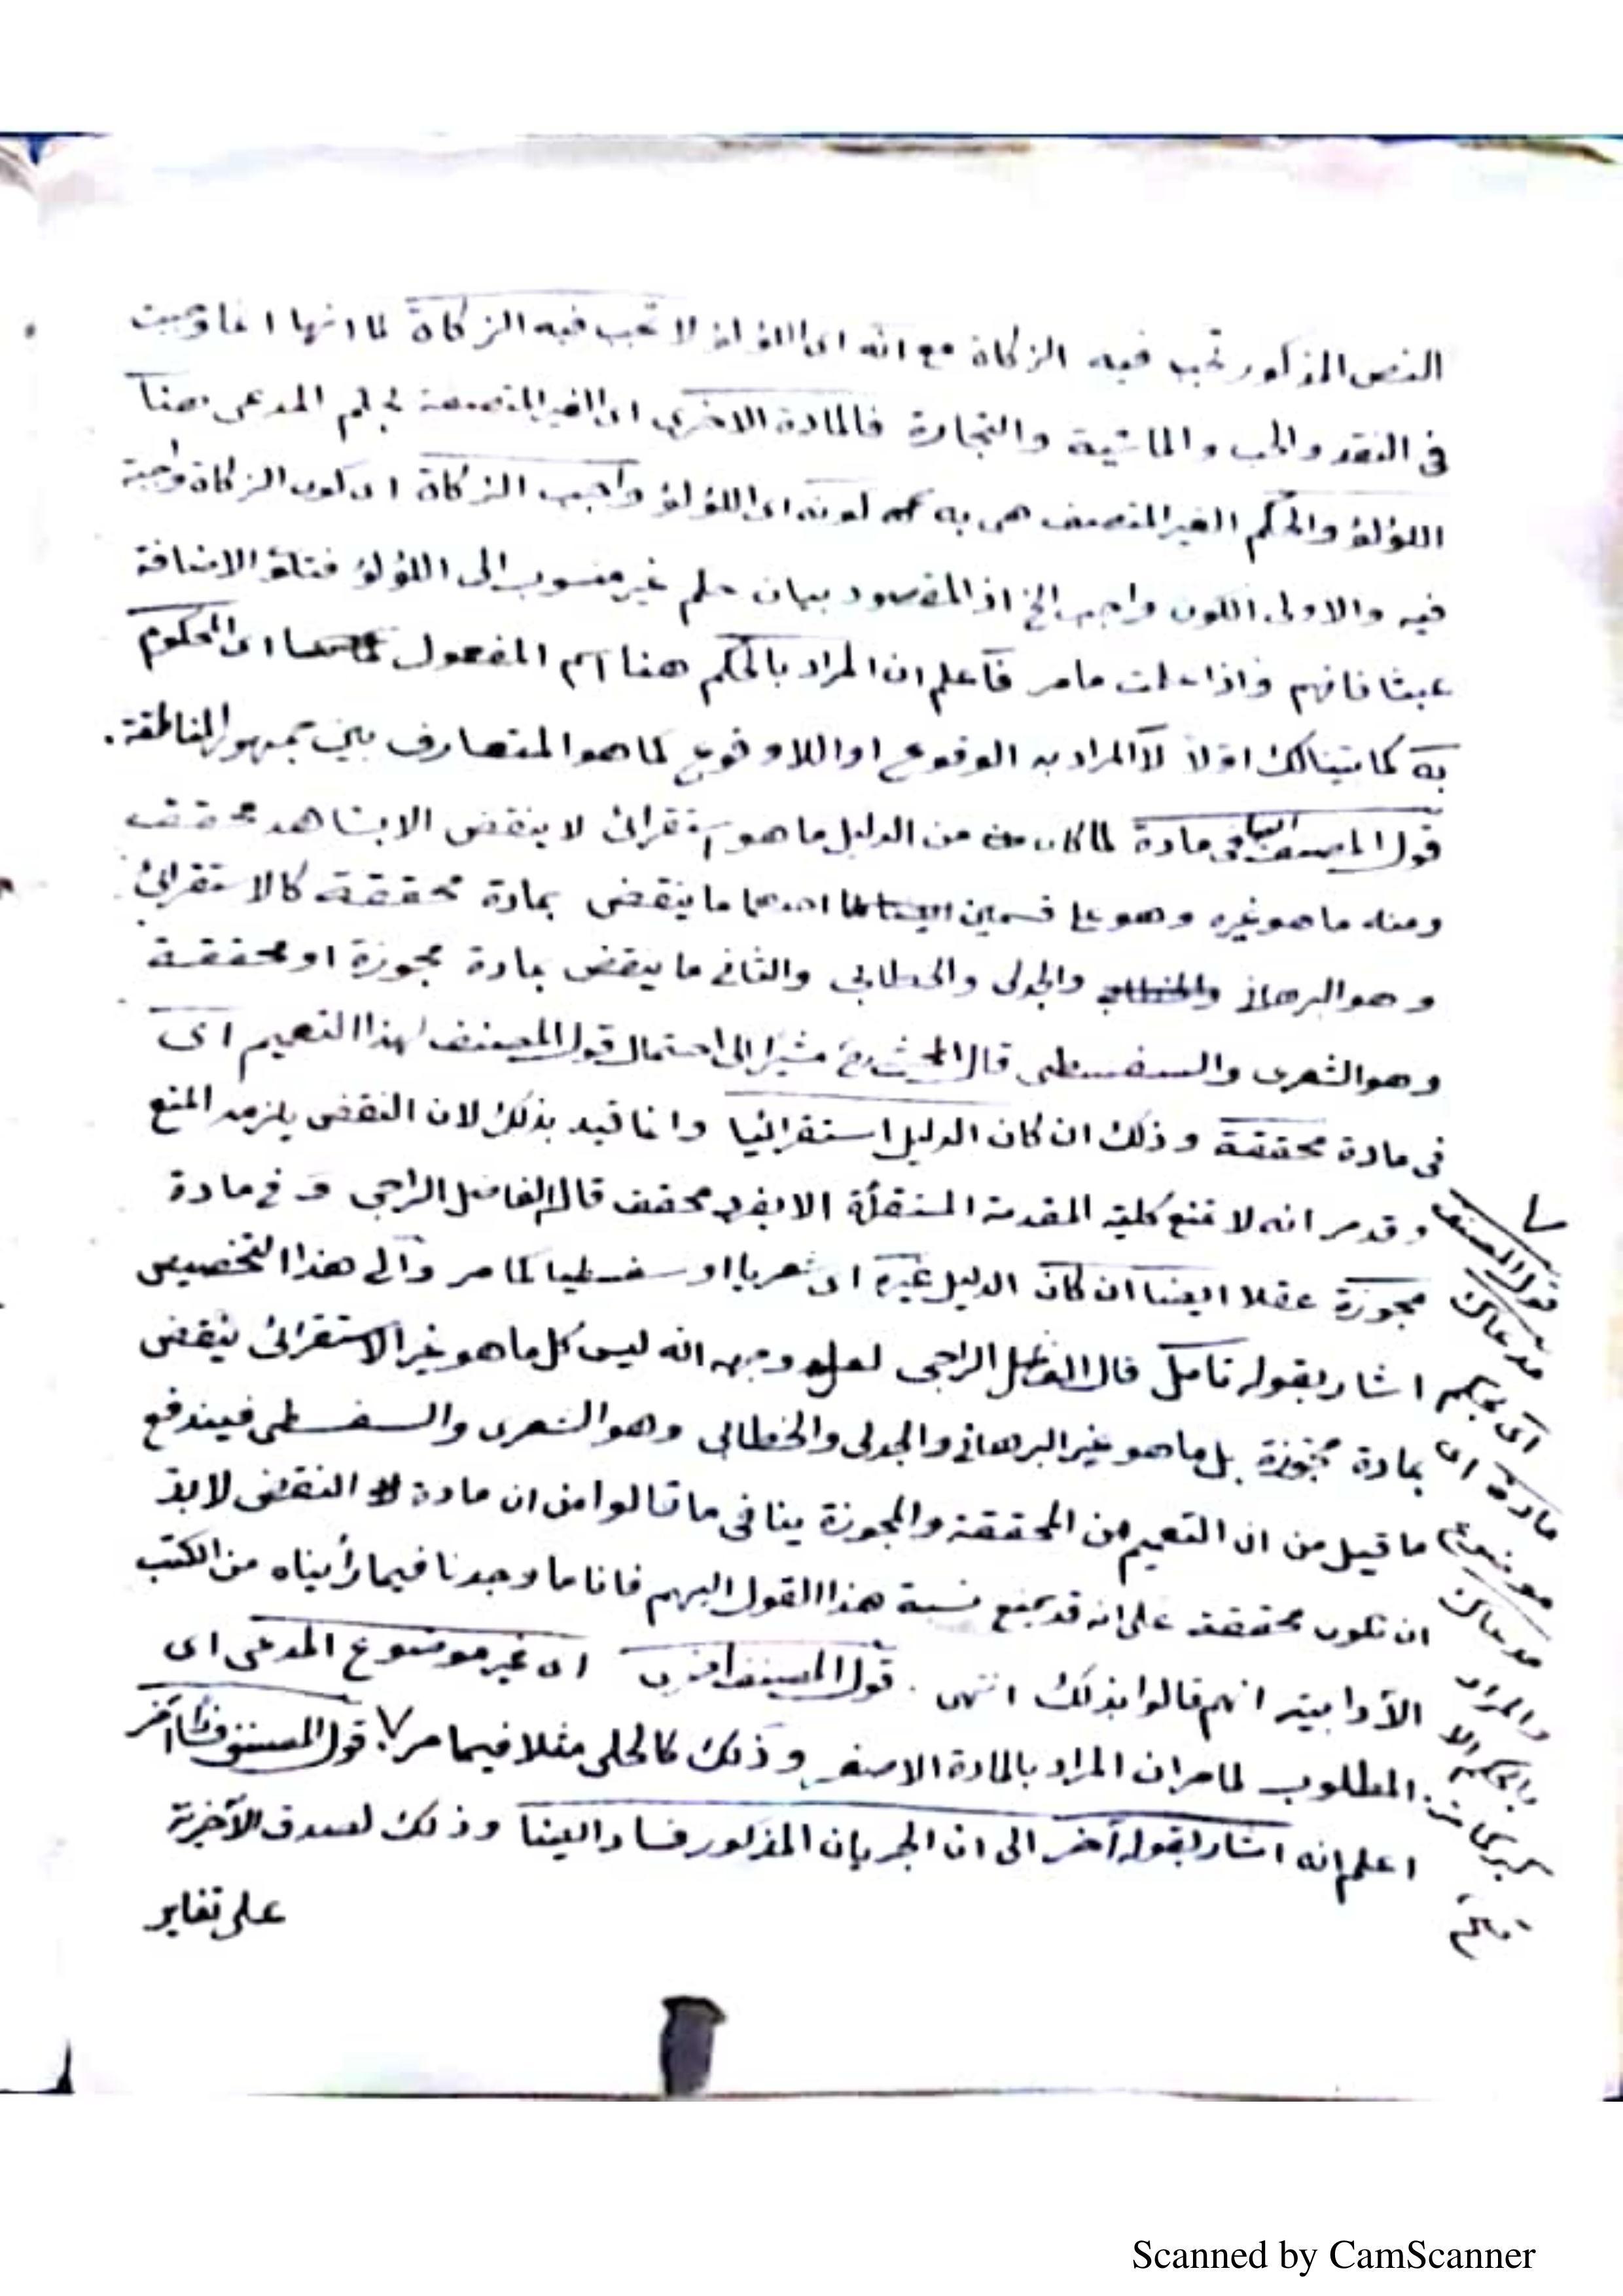 النص المذكور تجب فيه الزكاة مع انه اى اللؤلؤ لا تجب فيه الزكاة لما انها انما وجبت
فى النقد والحب والماشية والتجارة فالمادة الاخرى اى الغير المتصفة بحكم المدعى هنا
اللؤلؤ والحكم الغير المتصف هى به كونه اى اللؤلؤ واجب الزكاة اى كون الزكاة واجبة
فيه والاولى الكون واجب الخ اذ المقصود بيان حكم غير منسوب الى اللؤلؤ فتلغو الاضافة
عبثا فافهم واذا علمت مامر فاعلم ان المراد بالحكم هنا اسم المفعول اى المحكوم
به كما بينا لك اولا لا المراد به الوقوع او اللاوقوع كما هو المتعارف بين جمهور المناطقة.
قول المصنف فى مادة لما كان من الدليل ما هو استقرائى لا ينقض الا بشاهد محقق
ومنه ما هو غيره وهو على قسمين احدهما ما ينقض بمادة محققة كالاستقرائى
وهو البرهانى والجدلى والخطابى والثانى ما ينقض بمادة مجوزة او محققة
وهو الشعرى والسفسطى قال المحشى رح مشيرا الى احتمال قول المصنف لهذا التعميم اى
فى مادة محققة وذلك ان كان الدليل استقرائيا وانما قيد بذلك لان النقض يلزمه المنع
وقد مر انه لا تمنع كلية المقدمة المستقرأة الا بفرد محقق قال الفاضل الراجى و فى مادة
مجوزة عقلا ايضا ان كان الدليل غيره اى شعريا او سفسطيا لما مر والى هذا التخصيص
اشار بقوله تامل قال الفاضل الراجى لعل وجهه انه ليس كل ما هو غير الاستقرائى ينقض
بمادة مجوزة بل ما هو غير البرهانى والجدلى والخطابى وهو الشعرى والسفسطى فيندفع
ما قيل من ان التعميم من المحققة والمجوزة ينافى ما قالوا من ان مادة النقض لا بد
ان تكون محققة على انه قد يمنع نسبة هذا القول اليهم فانا ما وجدنا فيما رأيناه من الكتب
الآدابية انهم قالوا بذلك انتهى. قول المصنف اخرى اى غير موضوع المدعى اى
المطلوب لما مر ان المراد بالمادة الاصغر وذلك كالحلى مثلا فيما مر ٧ قول المصنف آخر
اعلم انه اشار بقوله آخر الى ان الجريان المذكور فساد ايضا وذلك لصدق الآخرية
على تغاير
٧ قول المصنف
مدعاك
اى بحكم
مادة اى
موضوع
مدعاك
والمراد
بالحكم الا
كبرى